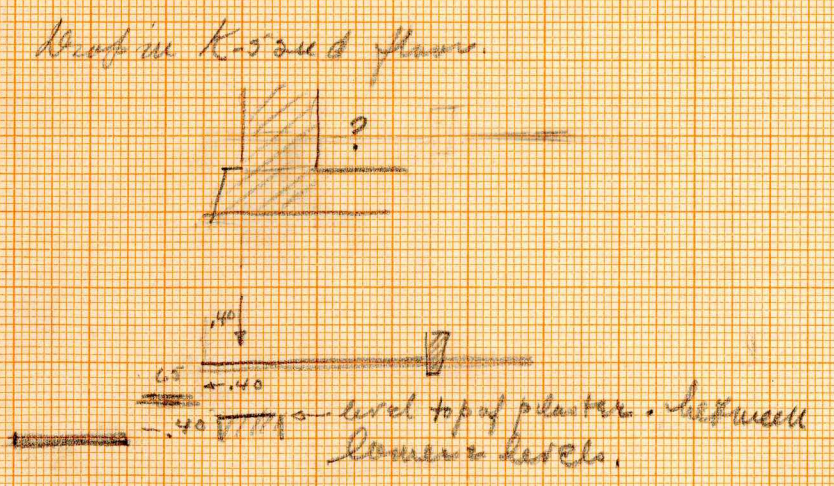 Drop in K-5 and floor.
?
.40
.65
-.40
-.40
level top of pilaster. between
lower levels.